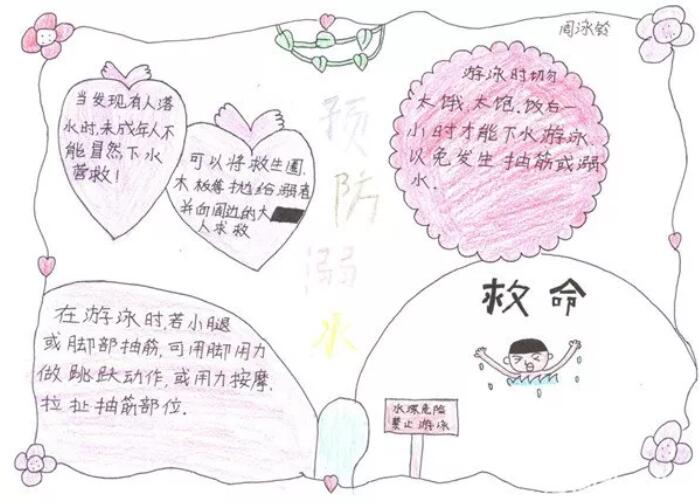 当发现有人落
水时,未成年人不
能冒然下水
营救!
可以将救生圈,
木板等抛给溺者
并向周边的大
人求救
预防溺水
游泳时切勿
太饿,太饱.饭后一
小时才能下水游泳,
以免发生抽筋或溺
水.
在游泳时,若小腿
或脚部抽筋,可用脚用力
做跳跃动作,或用力按摩,
拉扯抽筋部位.
救命
水深危险
禁止游泳